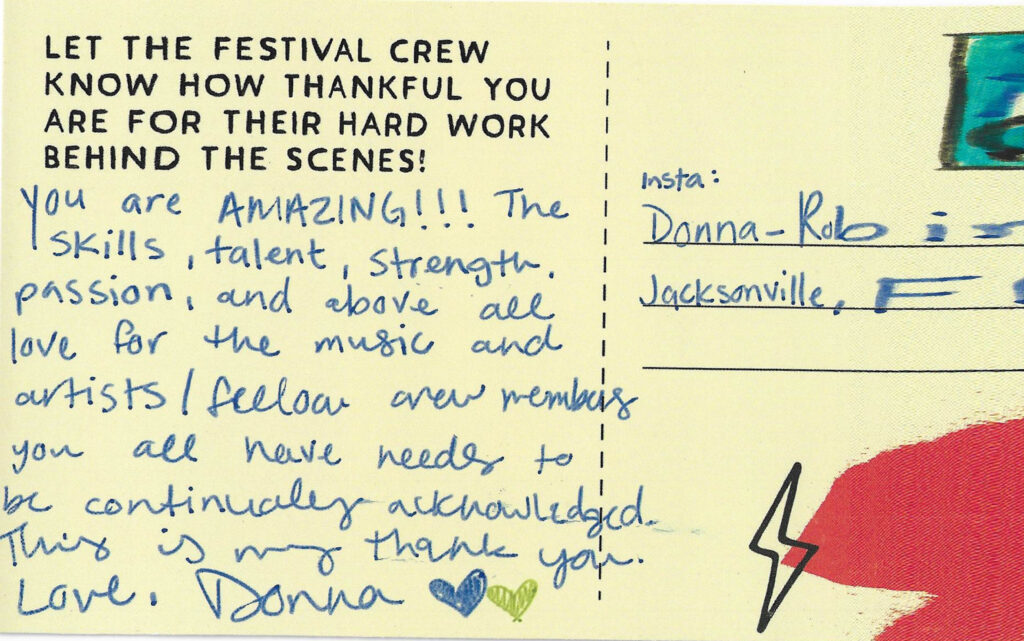 LET THE FESTIVAL CREW
KNOW HOW THANKFUL YOU
ARE FOR THEIR HARD WORK
BEHIND THE SCENES!
You are AMAZING!!! The
skills, talent, strength,
passion, and above all
love for the music and
artists/feellow crew members
you all have needs to
be continualey acknowledged.
This is my thank you.
Love, Donna
Insta:
Donna-Robin
Jacksonville, F